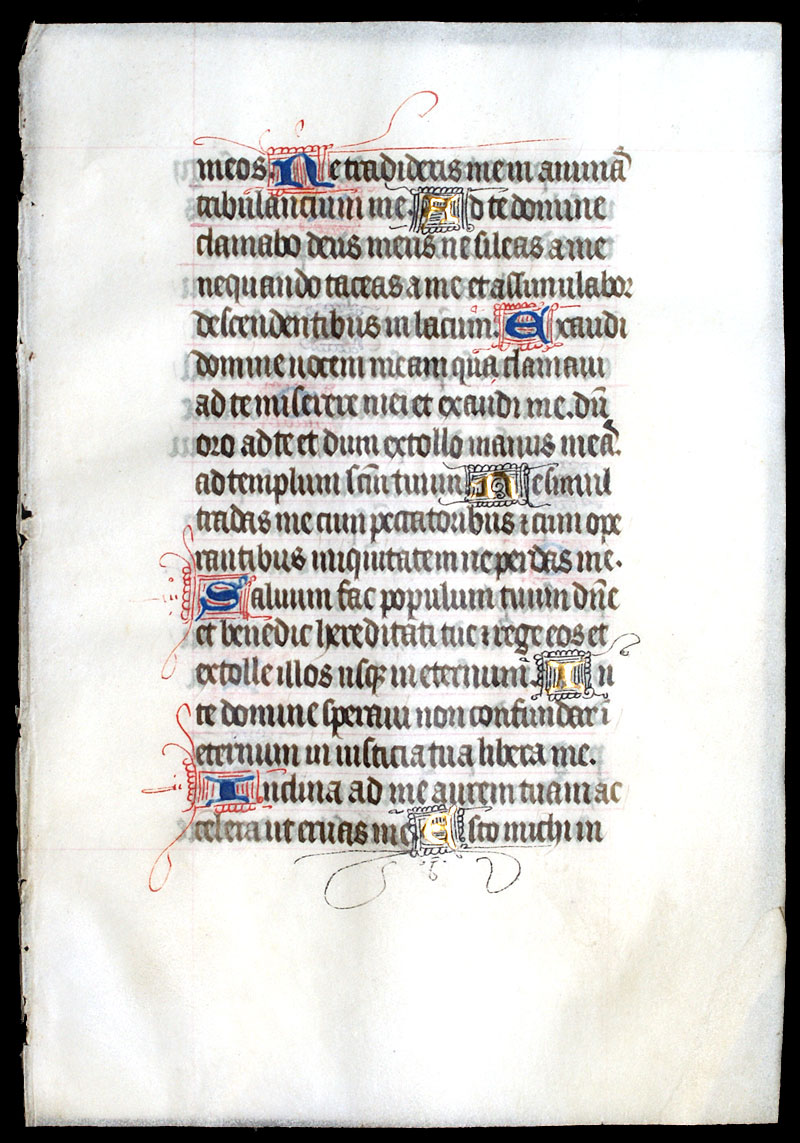 meos. Ne tradideris me in animā
tribulantium me. Ad te domine
clamabo deus meus ne sileas a me
nequando taceas a me et assimulabor
descendentibus in lacum. Exaudi
domine uocem meam qua clamaui
ad te miserere mei et exaudi me. dū
oro ad te et dum extollo manus meā.
ad templum scm̄ tuum. Ne simul
tradas me cum peccatoribus ⁊ cum ope
rantibus iniquitatem ne perdas me.
Saluum fac populum tuum dn̄e
et benedic hereditati tue ⁊ rege eos et
extolle illos usqꝫ in eternum. In
te domine speraui non confundar ī
eternum in iusticia tua libera me.
Inclina ad me aurem tuam ac
celera ut eruas me. Esto michi in